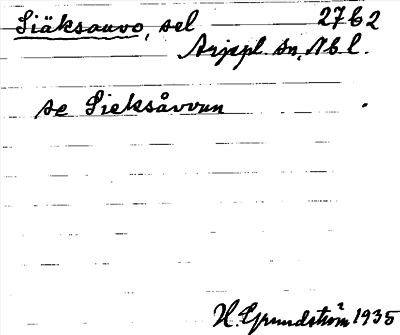 Siäksauvo, sel 27C2
Arjepl. sn, Nb l.
se Sieksåvvun
H. Grundström 1935